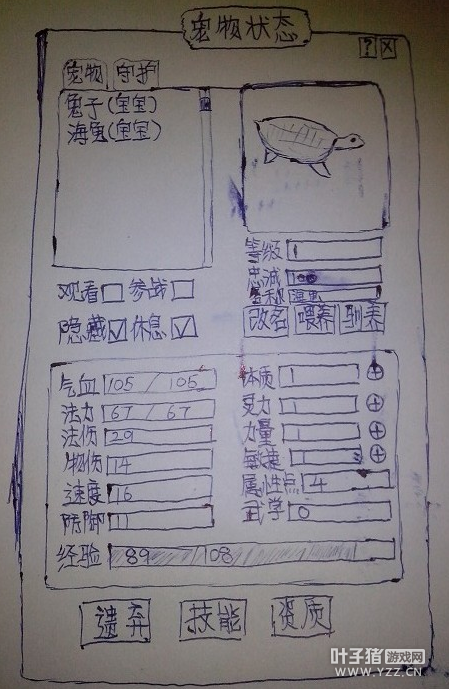 宠物状态
? X
宠物 守护
兔子(宝宝)
海龟(宝宝)
等级 1
忠诚 100
名称
观看 参战
隐藏 休息
改名 喂养 驯养
气血 105 / 105
体质 1
法力 67 / 67
灵力 1
法伤 29
力量 1
物伤 14
敏捷 1
速度 16
属性点 4
防御 11
武学 0
经验 89 / 108
遗弃 技能 资质
叶子猪游戏网
WWW.YZZ.CN